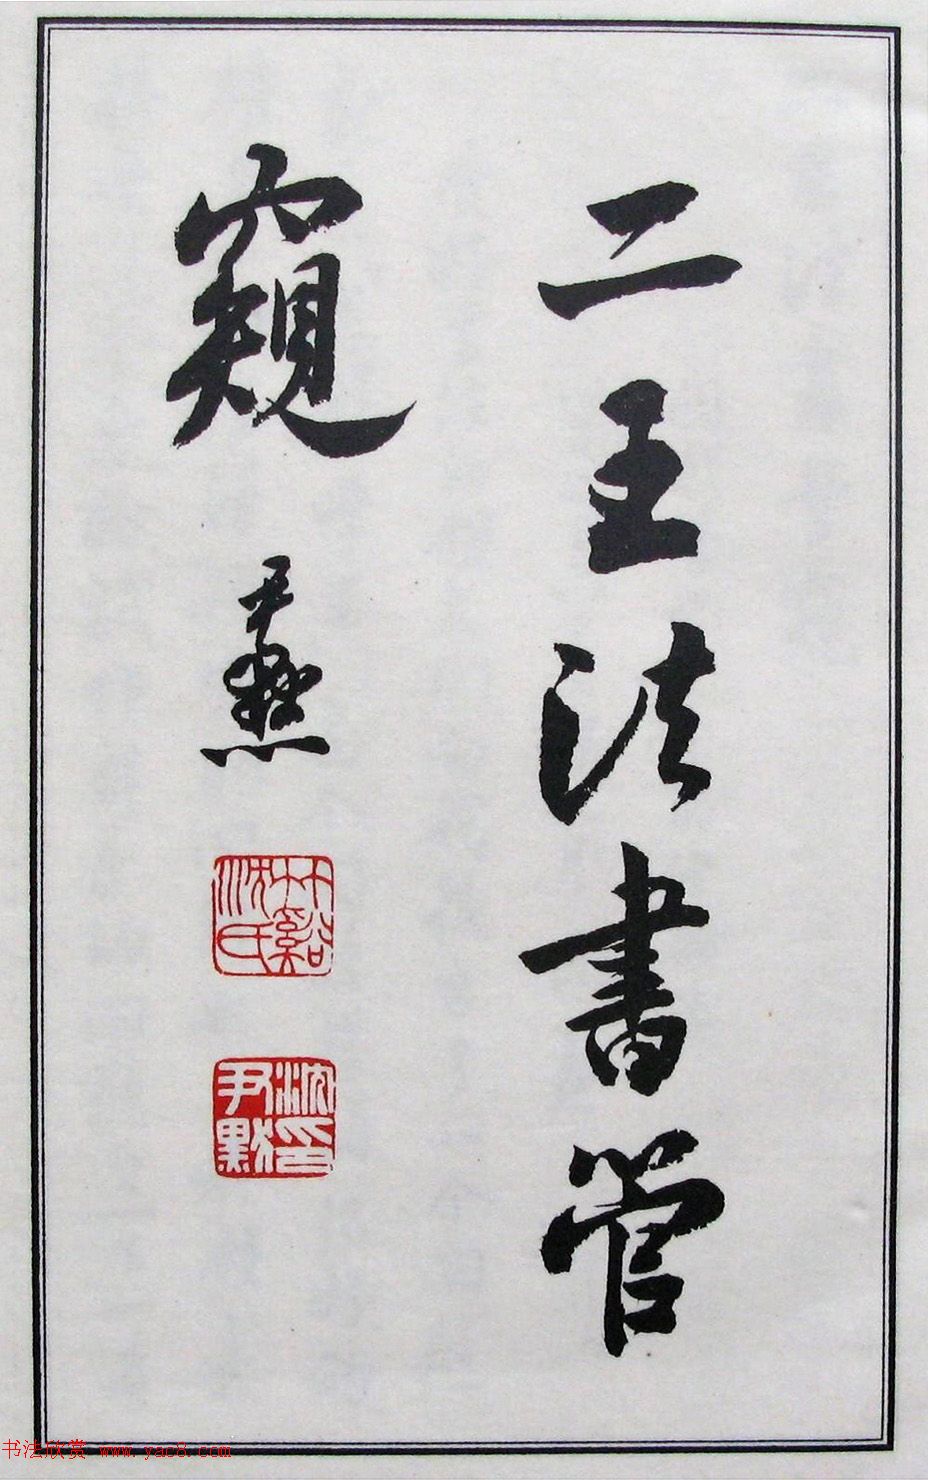 二王法書管
窺 尹默
竹谿沈氏
沈尹默印
书法欣赏 www.yac8.com